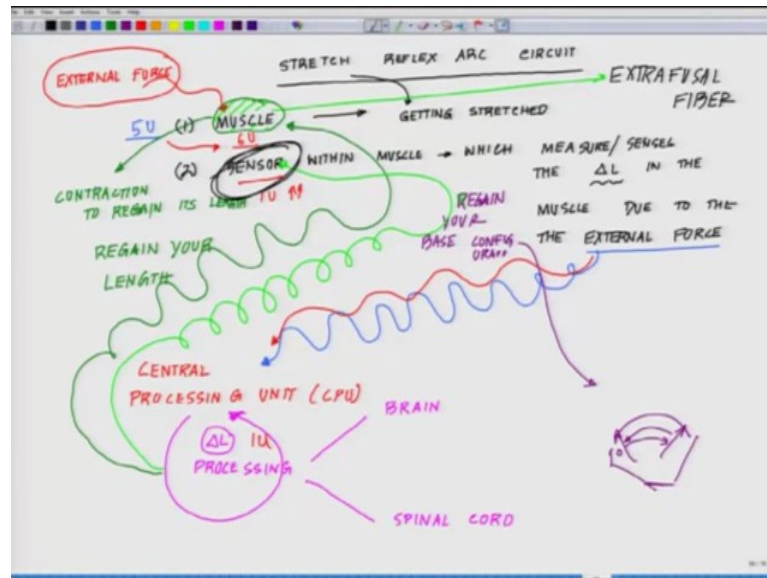 STRETCH REFLEX ARC CIRCUIT
EXTERNAL FORCE
EXTRAFUSAL
FIBER
5U (1) MUSCLE → GETTING STRETCHED
6U
(2) SENSOR WITHIN MUSCLE → WHICH MEASURE/SENSES
THE ΔL IN THE
MUSCLE DUE TO THE
THE EXTERNAL FORCE
CONTRACTION
TO REGAIN ITS LENGTH
1U ↑↑
REGAIN YOUR
LENGTH
REGAIN
YOUR
BASE CONFIG
CENTRAL
PROCESSING UNIT (CPU)
BRAIN
ΔL 1U
PROCESSING
SPINAL CORD